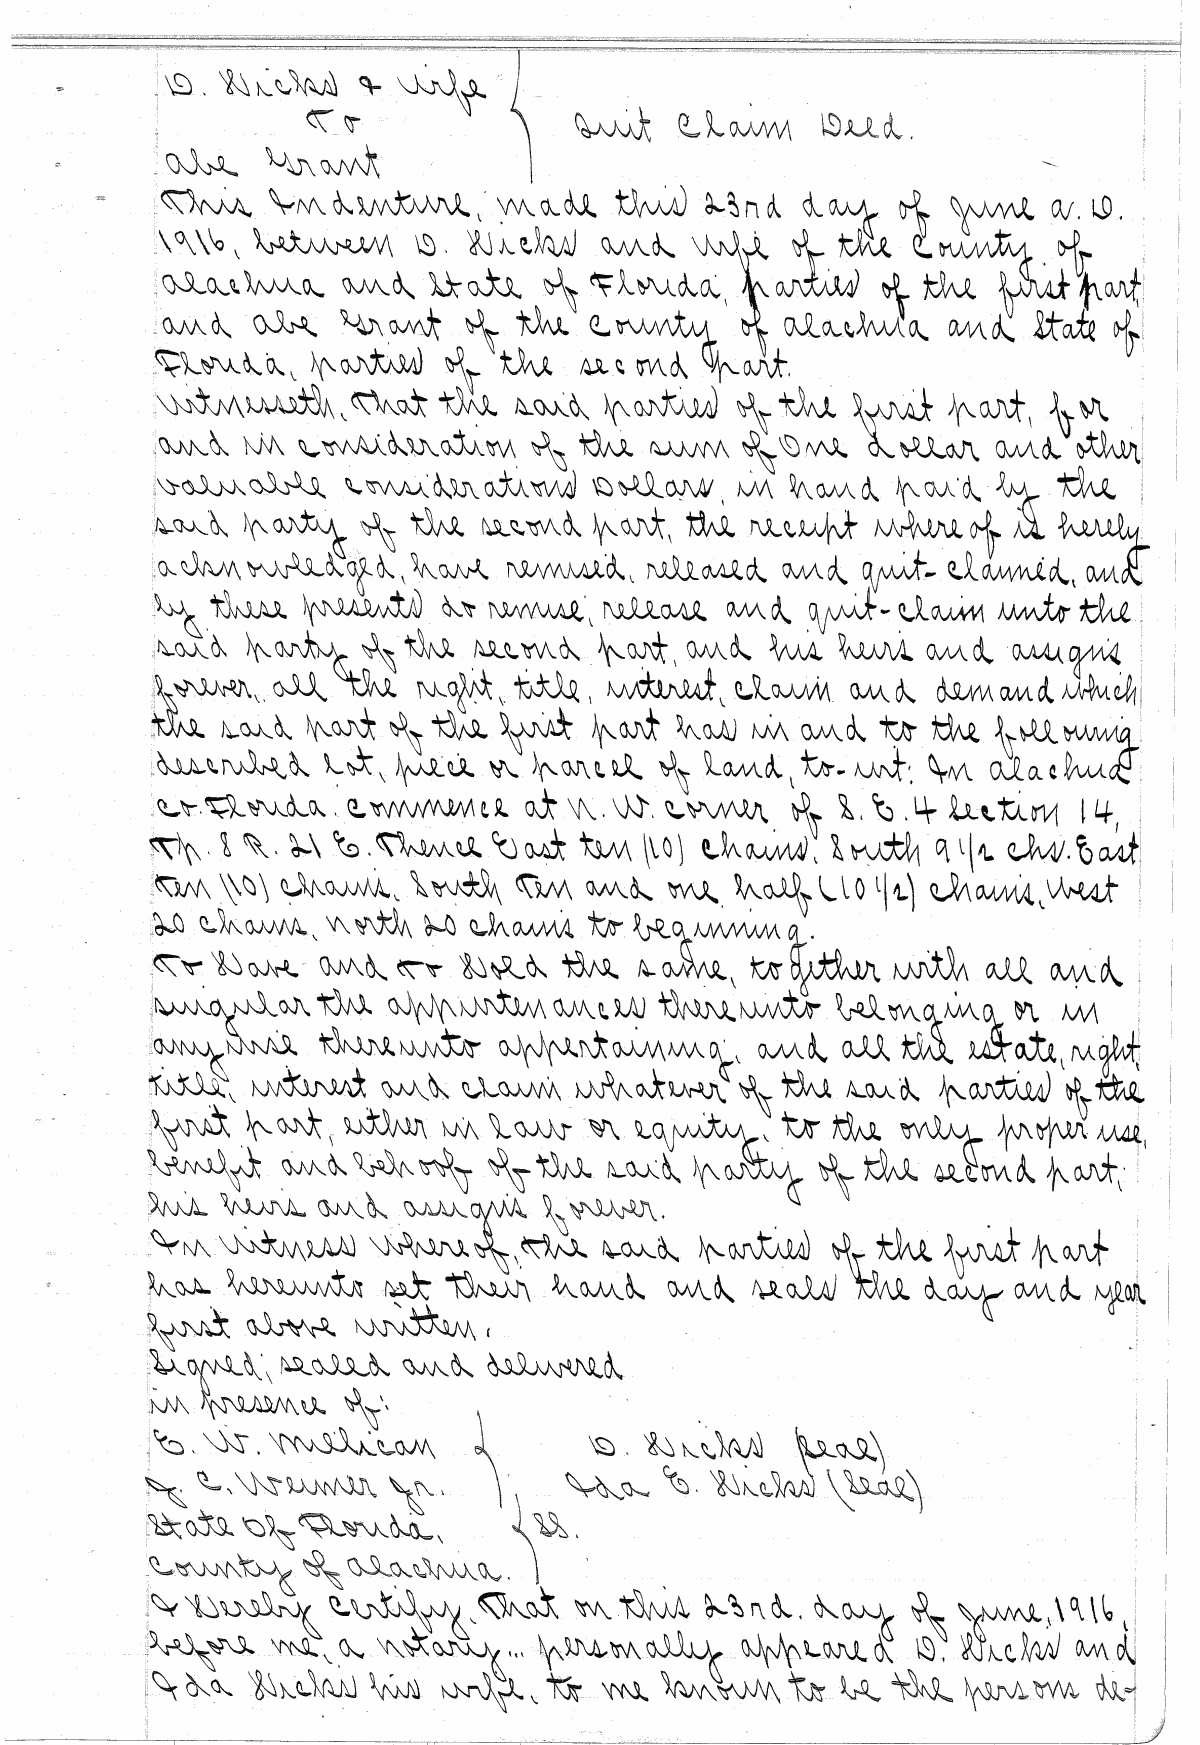 D. Hicks & Wife
To
Quit Claim Deed.
Abe Grant
This Indenture, made this 23rd day of June A. D.
1916, between D. Hicks and wife of the County of
Alachua and State of Florida, parties of the first part
and Abe Grant of the County of Alachua and State of
Florida, parties of the second part.
Witnesseth, That the said parties of the first part, for
and in consideration of the sum of One dollar and other
valuable considerations Dollars, in hand paid by the
said party of the second part, the receipt whereof is hereby
acknowledged, have remised, released and quit-claimed, and
by these presents do remise, release and quit-claim unto the
said party of the second part, and his heirs and assigns
forever, all the right, title, interest, claim and demand which
the said part of the first part has in and to the following
described lot, piece or parcel of land, to-wit: In Alachua
Co. Florida. Commence at N. W. corner of S. E. 4 Section 14,
Tp. 8 R. 21 E. Thence East ten (10) chains, South 9 1/2 chs. East
Ten (10) chains, South Ten and one half (10 1/2) chains, West
20 chains, North 20 chains to beginning.
To Have and to Hold the same, together with all and
singular the appurtenances thereunto belonging or in
anywise thereunto appertaining, and all the estate, right,
title, interest and claim whatever of the said parties of the
first part, either in law or equity, to the only proper use,
benefit and behoof of the said party of the second part,
his heirs and assigns forever.
In Witness Whereof, The said parties of the first part
has hereunto set their hand and seals the day and year
first above written.
Signed, sealed and delivered
in presence of:
E. W. Millican D. Hicks (Seal)
J. C. Weimer Jr. Ida E. Hicks (Seal)
State of Florida, SS.
County of Alachua.
I Hereby Certify, That on this 23rd. day of June, 1916,
before me, a notary... personally appeared D. Hicks and
Ida Hicks his wife, to me known to be the persons de-